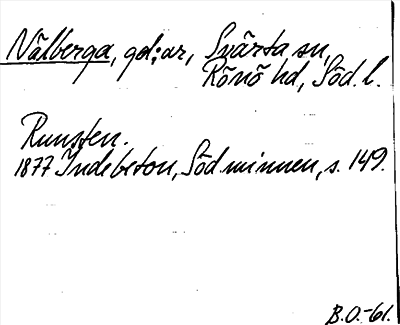 Nälberga, gd;ar, Svärta sn,
Rönö hd, Söd. l.
Runsten.
1877 Indebeton, Söd. minnen, s. 149.
B.O.-61.